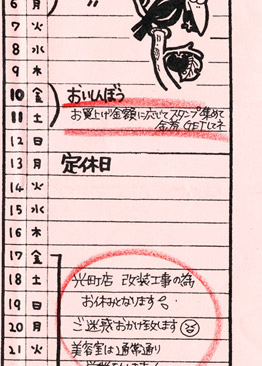 6 月 〃
7 火
8 水
9 木
10 金 おいひぼう
11 土 お買上げ金額に応じてスタンプ集めて
金券GETしてネ
12 日
13 月 定休日
14 火
15 水
16 木
17 金
18 土 光町店 改装工事の為
19 日 お休みとなります。
20 月 ご迷惑おかけ致します
21 火 美容室は通常通り